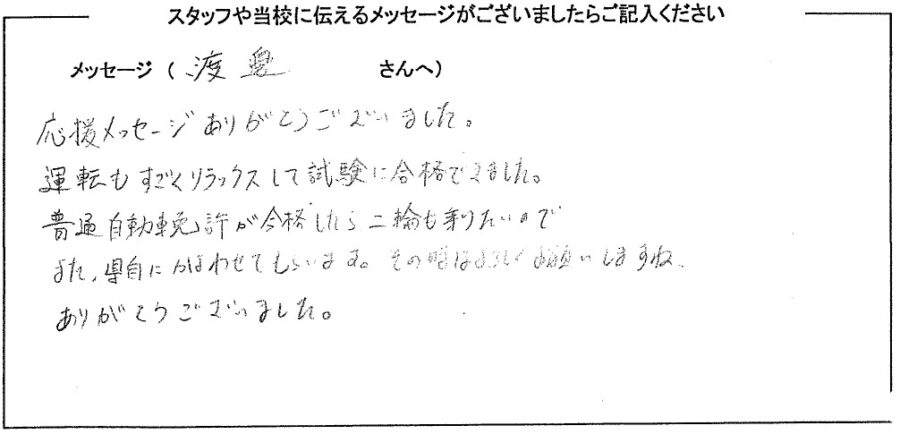 スタッフや当校に伝えるメッセージがございましたらご記入ください
メッセージ ( 渡 さんへ)
応援メッセージありがとうございました。
運転もすごくリラックスして試験に合格できました。
普通自動車免許が合格したら二輪も乗りたいので
また、県自にかよわせてもらいます。その時はよろしくお願いしますね、
ありがとうございました。